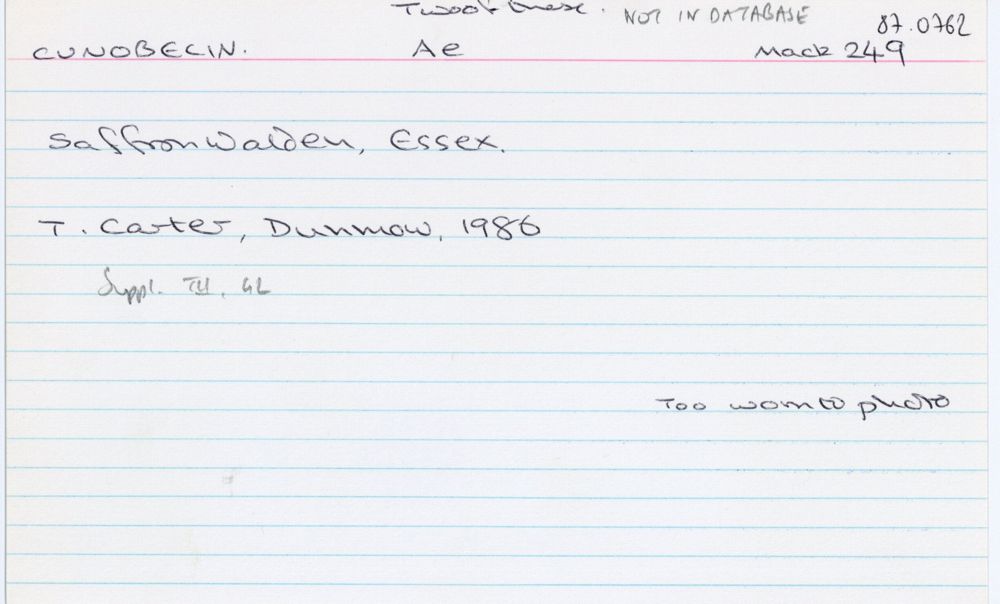 Two of these. NOT IN DATABASE 87.0762
CUNOBELIN. Ae Mack 249
Saffron Walden, Essex.
T. Carter, Dunmow, 1986
Suppl. III. GL
Too worn to photo